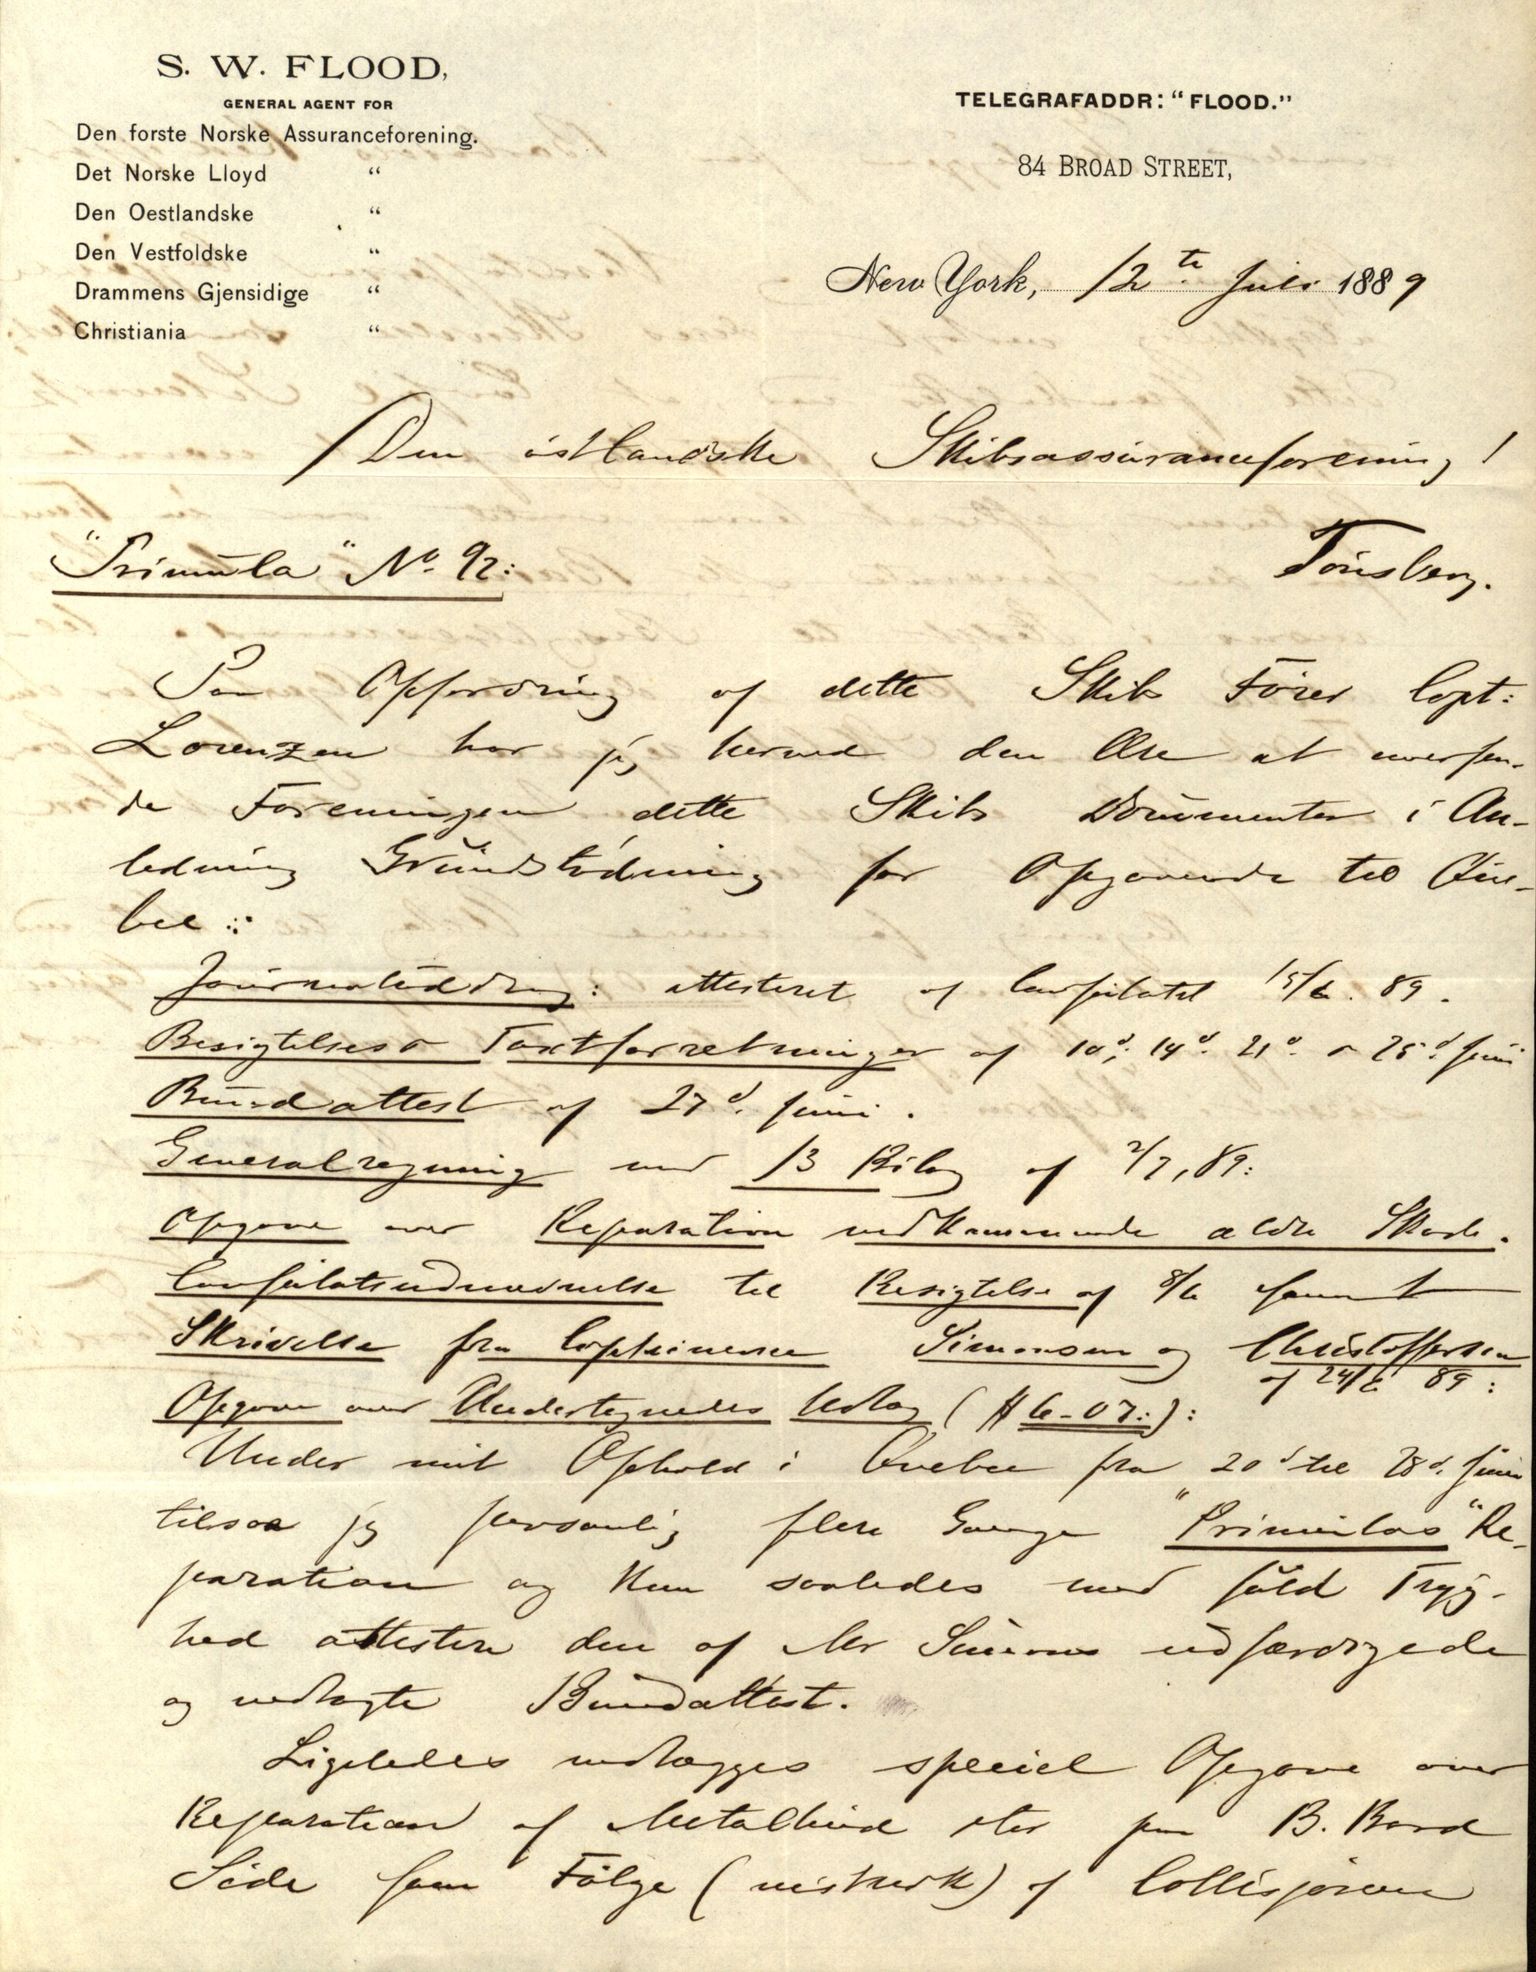 S. W. FLOOD,
GENERAL AGENT FOR
Den forste Norske Assuranceforening.
Det Norske Lloyd "
Den Oestlandske "
Den Vestfoldske "
Drammens Gjensidige "
Christiania "
TELEGRAFADDR: "FLOOD."
84 BROAD STREET,
New York, 12te Juli 1889
Den östlandske Skibsassuranceforening!
Tönsberg.
"Primula" No. 92:
Paa Opfordring af dette Skibs Förer Capt:
Lorenzen har jeg herved den Ære at oversen-
de Foreningen dette Skibs Documenter i An-
ledning Grundstödning for Opgaaende til Que-
bec:
Journaluddrag: attesteret af Consulatet 15/6. 89.
Besigtelses & Taxtforretninger af 10d, 14d. 21d. & 25d. Juni
Bundattest af 27d. Juni.
Generalregning med 13 Bilag af 2/7, 89:
Opgave over Reparation vedkommende ældre Skade.
Consulatsudnævnelse til Besigtelse af 8/6 samt
Skrivelse fra Captainerne Simonsen og Christoffersen
af 24/6 89:
Opgave over Undertegnedes Udlæg ($ 6-07.):
Under mit Ophold i Quebec fra 20d til 28d. Juni
tilsaa jeg personlig flere Gange "Primulas" Re-
paration og kan saaledes med fuld Tryg-
hed attestere den af Mr Simons udfærdigede
og vedlagte Bundattest.
Ligeledes vedlægges speciel Opgave over
Reparation af Metalhud etc paa B. Bord
Side som Fölge (vistnok) af Collisjonen